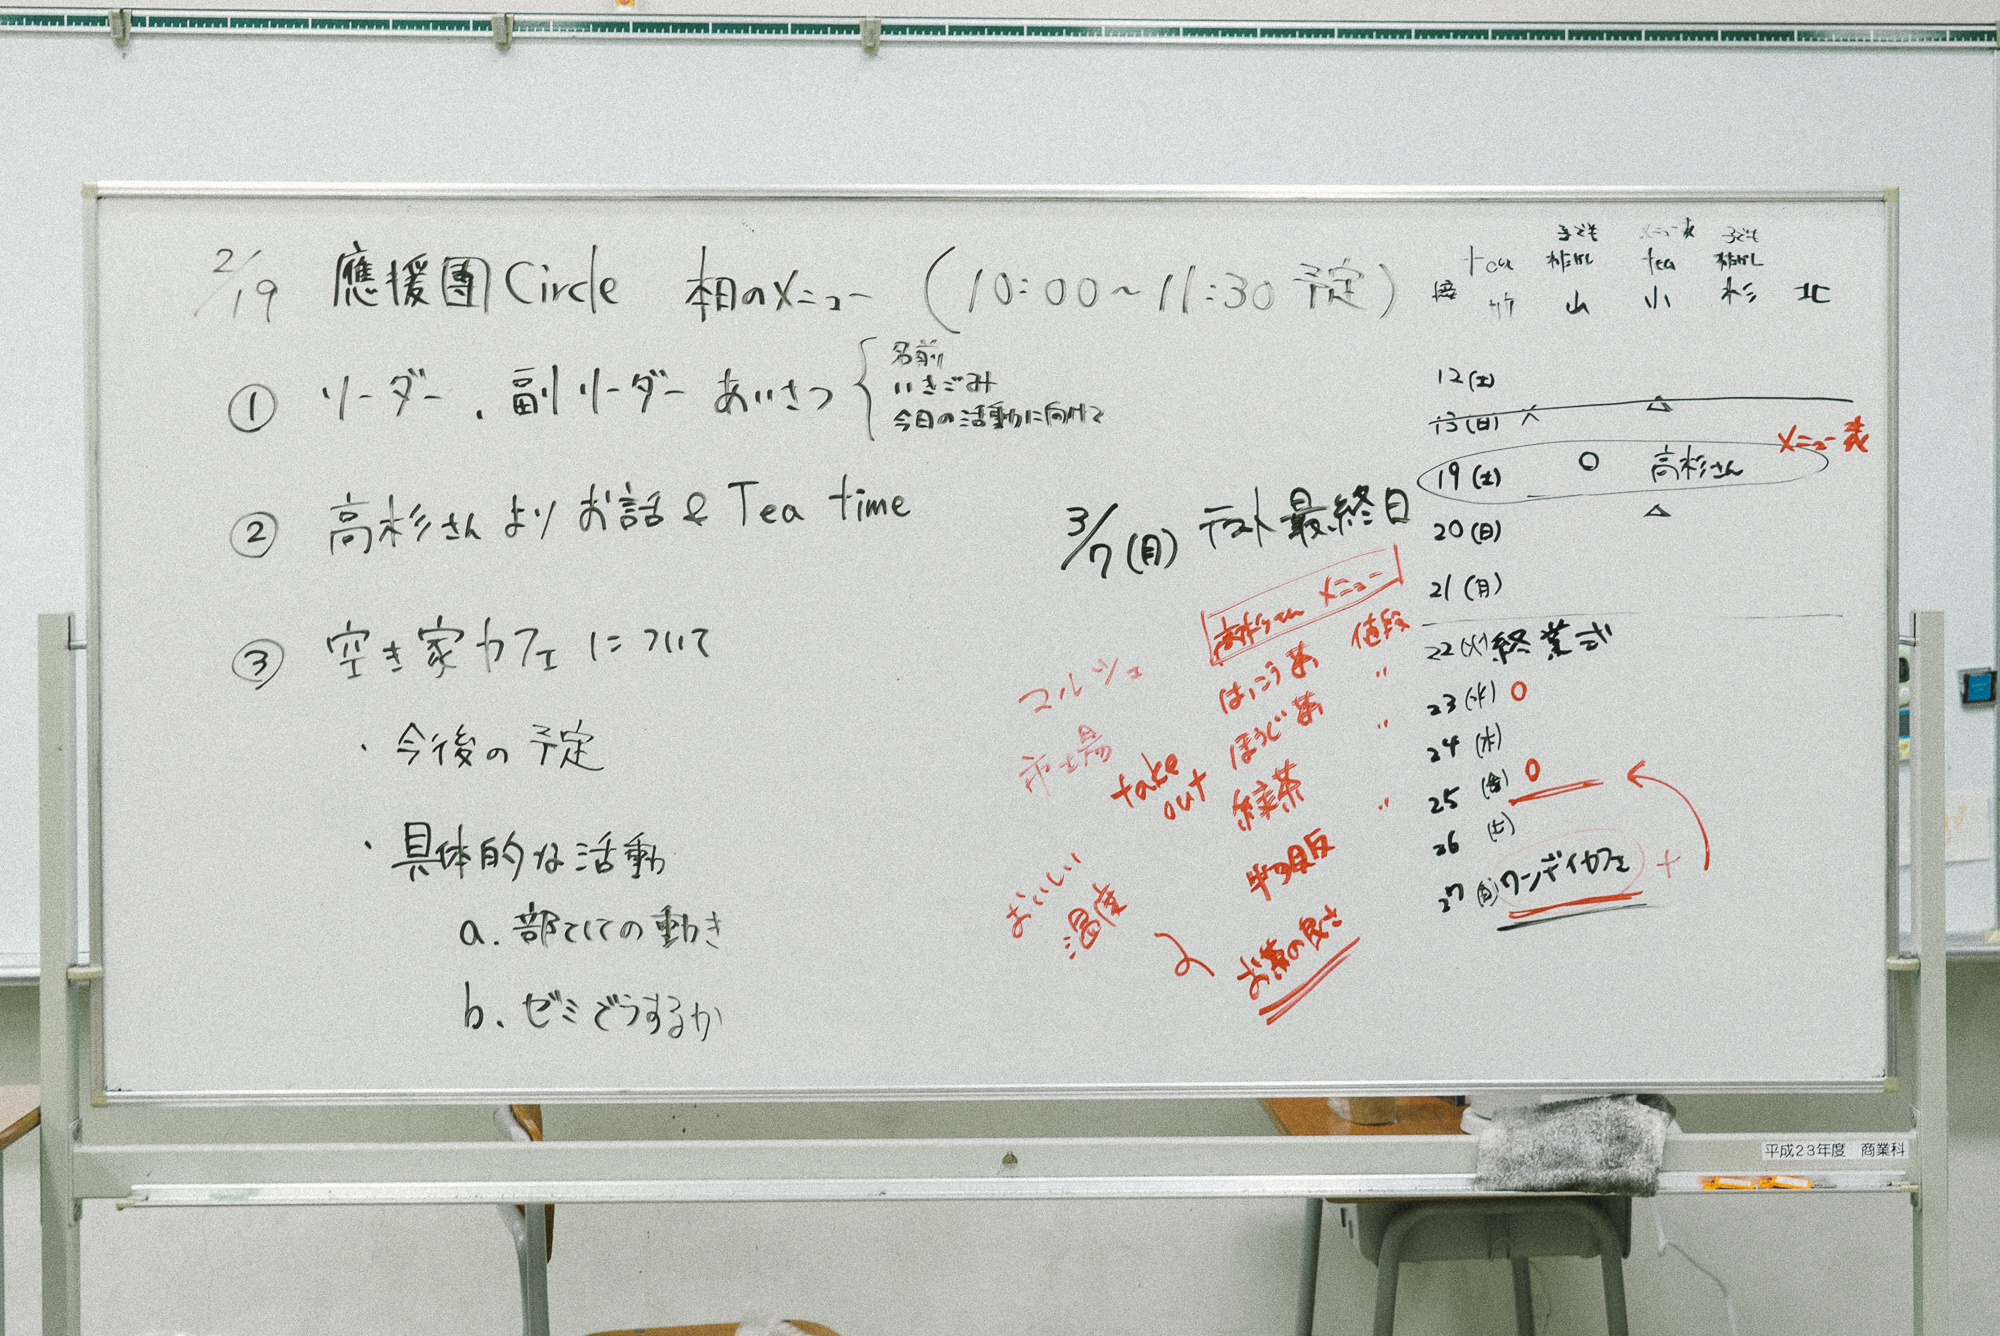 2/19 應援團Circle 本日のメニュー (10:00～11:30予定)
① リーダー、副リーダー あいさつ
名前
いきごみ
今日の活動に向けて
② 高杉さんよりお話 & Tea time
③ 空き家カフェについて
・今後の予定
・具体的な活動
a. 部としての動き
b. ゼミどうするか
3/7(月) テスト最終日
高杉さん メニュー
値段
はっこう茶 〃
ほうじ茶 〃
緑茶 〃
お茶の良さ
マルシェ
市場
take out
おいしい
温度
子ども メニュー表 子ども
tea tea
竹 山 小 杉 北
12(土)
13(日) × △
メニュー表
19(土) ○ 高杉さん
20(日) △
21(月)
22(火) 終業式
23(水) ○
24(木)
25(金) ○
26(土)
27(日) ワンデイカフェ +
平成23年度 商業科